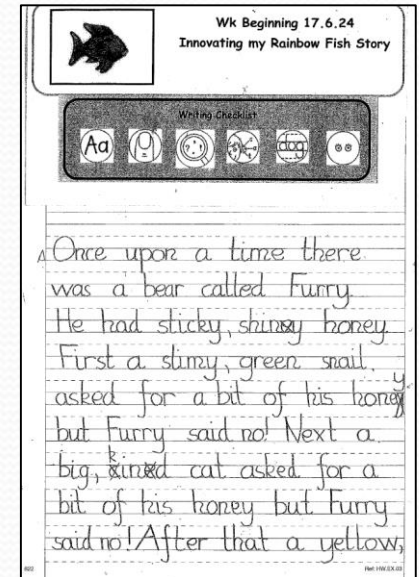 Wk Beginning 17.6.24
Innovating my Rainbow Fish Story
Writing Checklist
Aa
dog
Once upon a time there
was a bear called Furry.
He had sticky, shiny honey.
First a slimy, green snail
asked for a bit of his honey
but Furry said no! Next a
big, kind cat asked for a
bit of his honey but Furry
said no! After that a yellow,